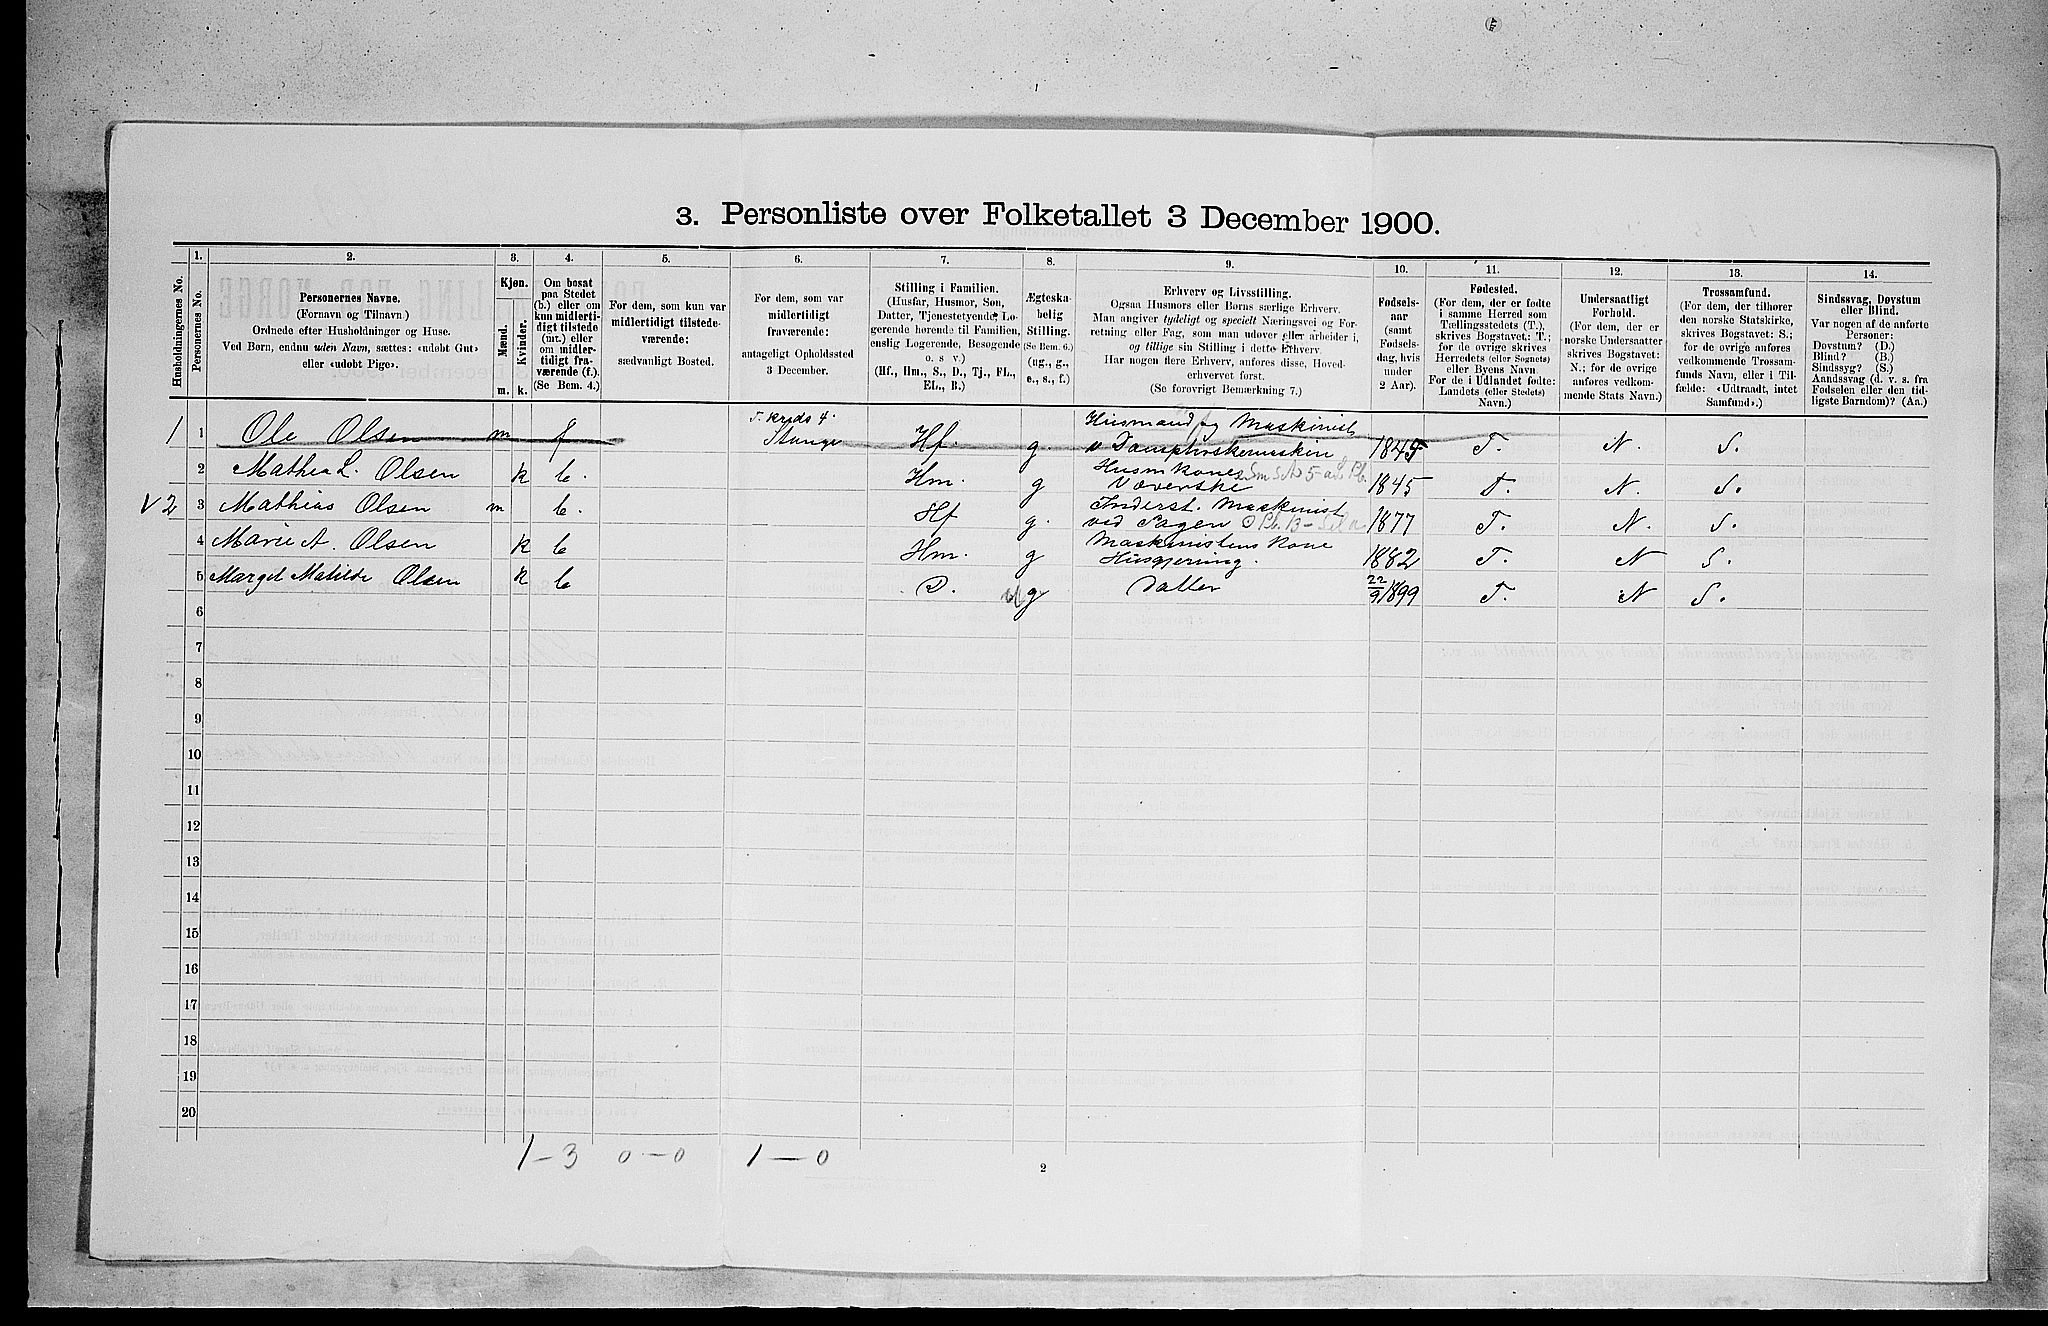 3. Personliste over Folketallet 3 December 1900.
Husholdningernes No.
1.
Personernes No.
2.
Personernes Navne.
(Fornavn og Tilnavn.)
Ordnede efter Husholdninger og Huse.
Ved Børn, endnu uden Navn, sættes: «udøbt Gut»
eller «udøbt Pige».
3.
Kjøn.
Mænd.
Kvinder.
m. k.
4.
Om bosat
paa Stedet
(b.) eller om
kun midlerti-
digt tilstede
(mt.) eller
om midler-
tidigt fra-
værende (f.).
(Se Bem. 4.)
5.
For dem, som kun var
midlertidigt tilstede-
værende:
sædvanligt Bosted.
6.
For dem, som var
midlertidigt
fraværende:
antageligt Opholdssted
3 December.
7.
Stilling i Familien.
(Husfar, Husmor, Søn,
Datter, Tjenestetyende, Lo-
gerende hørende til Familien,
enslig Logerende, Besøgende
o. s v.)
(Hf., Hm., S., D., Tj., FL.,
EL., B.)
8.
Ægteska-
belig
Stilling.
(Se Bem. 6.)
(ug., g.,
e., s., f.)
9.
Erhverv og Livsstilling.
Ogsaa Husmors eller Børns særlige Erhverv.
Man angiver tydeligt og specielt Næringsvei og For-
retning eller Fag, som man udøver eller arbeider i,
og tillige sin Stilling i dette Erhverv.
Har nogen flere Erhverv, anføres disse, Hoved-
erhvervet først.
(Se forøvrigt Bemærkning 7.)
10.
Fødsels-
aar
(samt
Fødsels-
dag, hvis
under
2 Aar).
11.
Fødested.
(For dem, der er fødte
i samme Herred som
Tællingsstedets (T.),
skrives Bogstavet: T.;
for de øvrige skrives
Herredets (eller Sognets)
eller Byens Navn.
For de i Udlandet fødte:
Landets (eller Stedets)
Navn.)
12.
Undersaatligt
Forhold.
(For dem, der er
norske Undersaatter
skrives Bogstavet:
N.; for de øvrige
anføres vedkom-
mende Stats Navn.)
13.
Trossamfund.
(For dem, der tilhører
den norske Statskirke,
skrives Bogstavet: S.;
for de øvrige anføres
vedkommende Trossam-
funds Navn, eller i Til-
fælde: «Udtraadt, intet
Samfund».)
14.
Sindssvag, Døvstum
eller Blind.
Var nogen af de anførte
Personer:
Døvstum? (D.)
Blind? (B.)
Sindssyg? (S.)
Aandssvag (d. v. s. fra
Fødselen eller den tid-
ligste Barndom)? (Aa.)
1 1 Ole Olsen m f T. Kreds 4. Stange Hf. g. Husmand og Maskinist
v Dampt­rskemaskin 1845 T. N. S.
2 Mathea L. Olsen k b. Hm. g Husm Kone
Væverske 1845 T. N. S.
V 2 3 Mathias Olsen m b. Hf g. Inderst. Maskinist
ved Sagen 1877 T. N. S.
4 Marie A. Olsen k b Hm. g Maskinistens Kone
Husgjerning. 1882 T. N S.
5 Margit Matilde Olsen k b D. ug Datter 22/9 1899 T. N S.
6
7
8
9
10
11
12
13
14
15
16
17
18
19
20
1 – 3 0 – 0 1 – 0
2